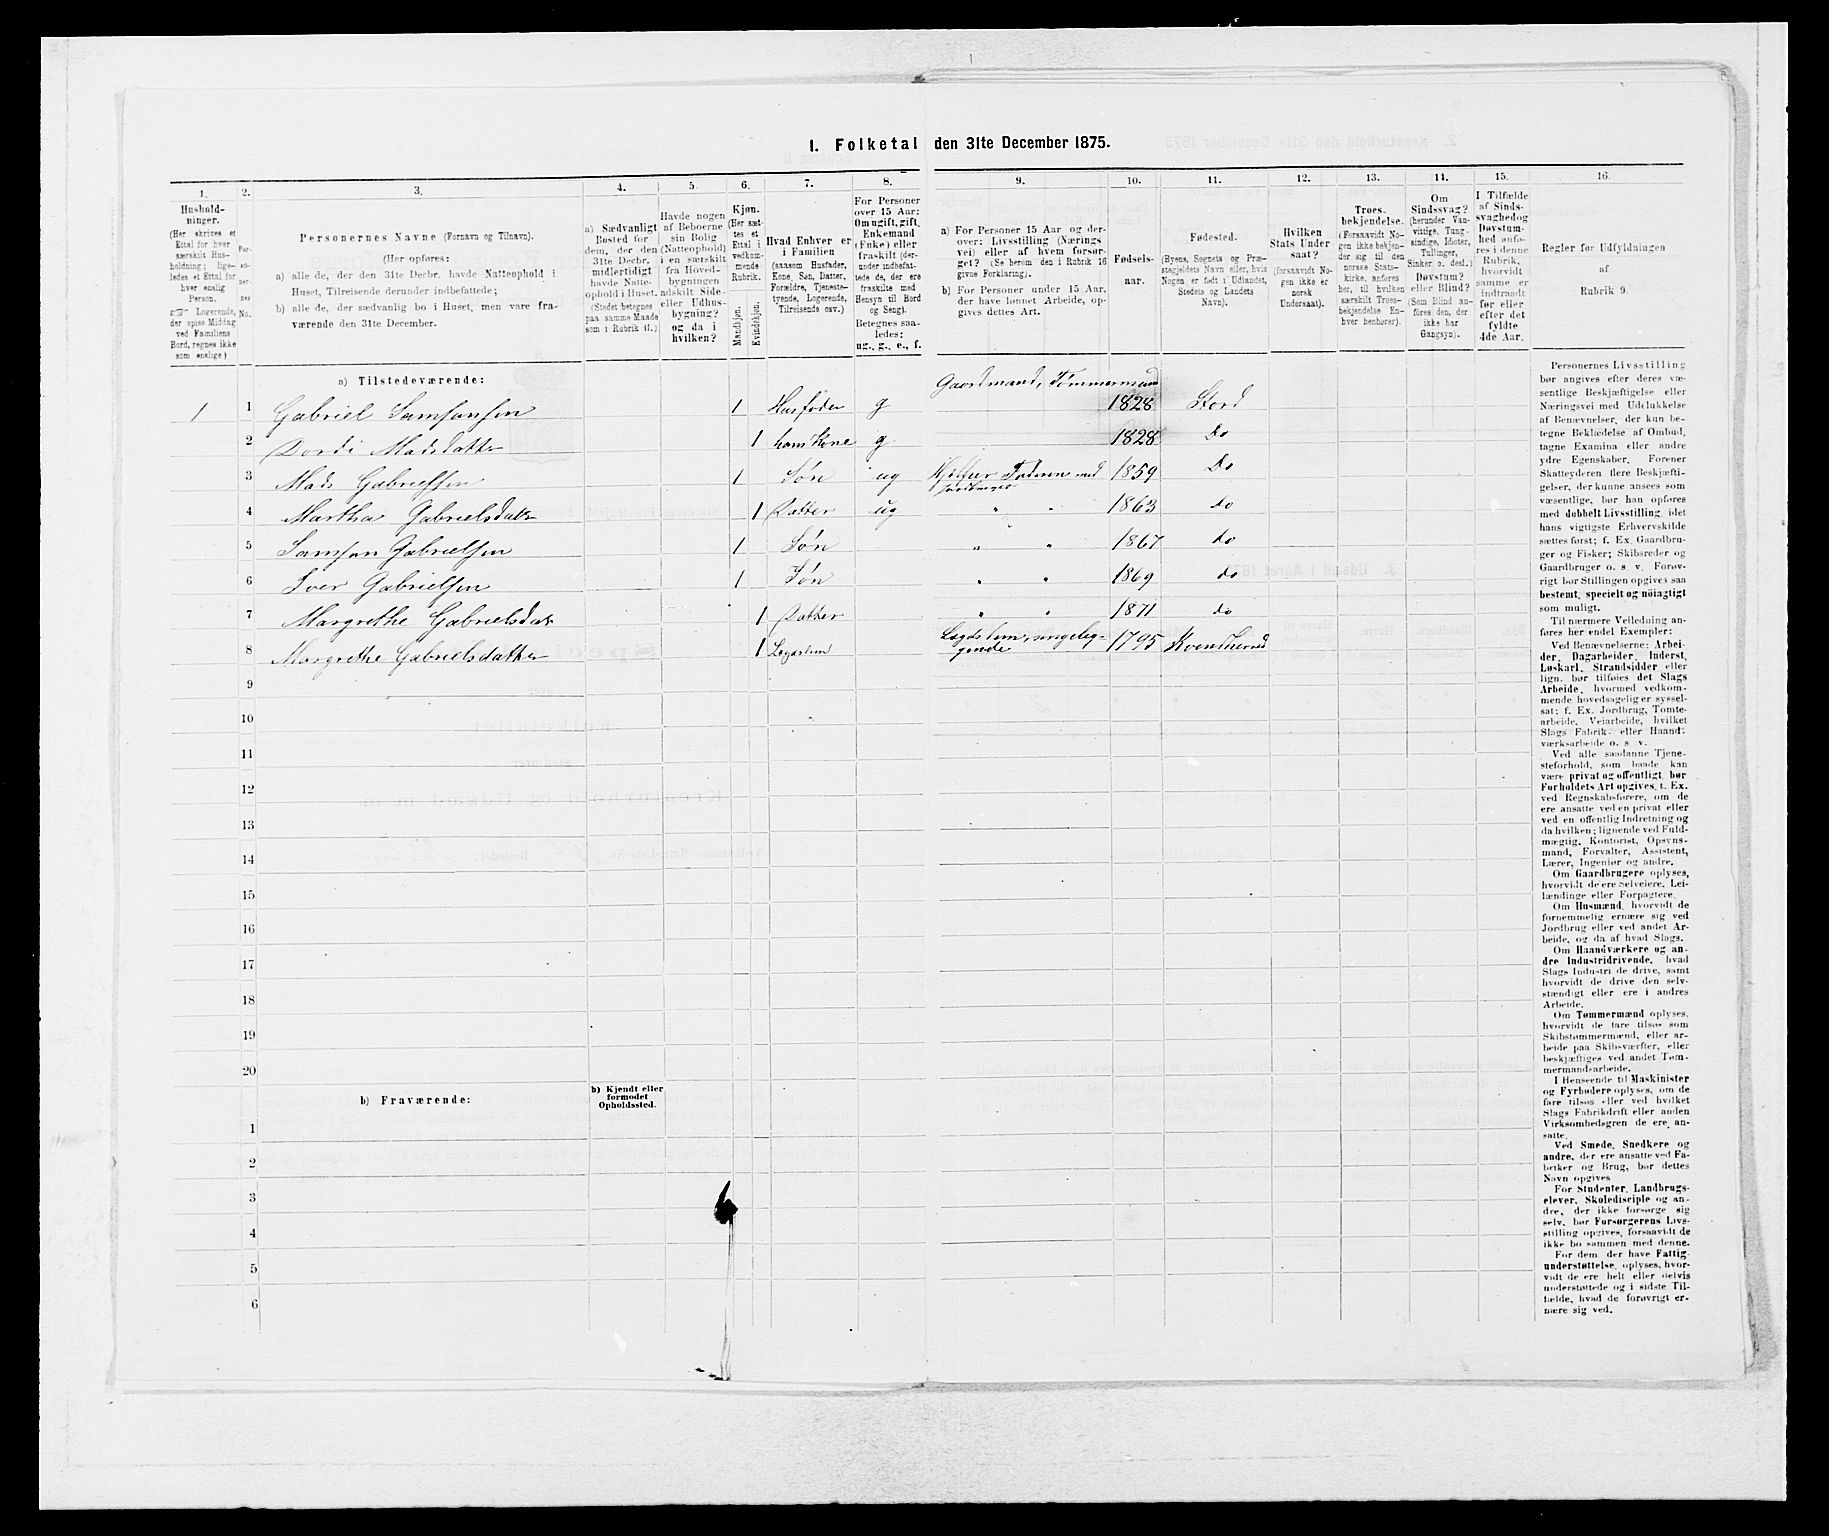 1. Folketal den 31te December 1875.
1. 2. 3. 4. 5. 6. 7. 8. 9. 10. 11. 12. 13. 14. 15. 16.
Hushold-
ninger.
(Her skrives et
Ettal for hver
særskilt Hus-
holdning; lige-
ledes et Ettal for
hver enslig
Person.
Logerende,
der spise Middag
ved Familiens
Bord, regnes ikke
som enslige)
Per-
so-
ner-
nes
No.
Personernes Navne (Fornavn og Tilnavn).
(Her opføres:
a) alle de, der den 31te Decbr. havde Natteophold i
Huset, Tilreisende derunder indbefattede;
b) alle de, der sædvanlig bo i Huset, men vare fra-
værende den 31te December.
a) Sædvanligt
Bosted for
dem, der den
31te Decbr.
midlertidigt
havde Natte-
ophold i Huset.
(Stedet betegnes
paa samme Maade
som i Rubrik 11.)
Havde nogen
af Beboerne
sin Bolig
(Natteophold)
i en særskilt
fra Hoved-
bygningen
adskilt Side-
eller Udhus-
bygning?
og da i
hvilken?
Kjøn.
(Her sæt-
tes et
Ettal i
vedkom-
mende
Rubrik.
Mandkjøn.
Kvindekjøn.
Hvad Enhver er
i Familien
(saasom Husfader,
Kone, Søn, Datter,
Forældre, Tjeneste-
tyende, Logerende,
Tilreisende osv.)
For Personer
over 15 Aar:
Om ugift, gift,
Enkemand
(Enke) eller
fraskilt (der-
under indbefat-
tede de, der ere
fraskilte med
Hensyn til Bord
og Seng).
Betegnes saa-
ledes:
ug., g., e., f.
a) For Personer 15 Aar og der-
over: Livsstilling (Nærings
vei) eller af hvem forsør-
get? (Se herom den i Rubrik 16
givne Forklaring).
b) For Personer under 15 Aar,
der have lønnet Arbeide, op-
gives dettes Art.
Fødsels-
aar.
Fødested.
(Byens, Sognets og Præ-
stegjeldets Navn eller, hvis
Nogen er født i Udlandet,
Stedets og Landets
Navn).
Hvilken
Stats Under
saat?
(forsaavidt No-
gen ikke er
norsk
Undersaat).
Troes-
bekjendelse.
(Forsaavidt No-
gen ikke bekjen-
der sig til den
norske Stats-
kirke, anføres
her, til hvilken
særskilt Troes-
bekjendelse En-
hver henhører).
Om
Sindssvag?
(herunder Van-
vittige, Tung-
sindige, Idioter,
Tullinger,
Sinker o. desl.)
Døvstum?
eller Blind?
(Som Blind an-
føres den, der
ikke har
Gangsyn).
I Tilfælde
af Sinds-
svaghed og
Døvstum-
hed anfø-
res i denne
Rubrik,
hvorvidt
samme er
indtraadt
før eller
efter det
fyldte
4de Aar.
Regler for Udfyldningen
af
Rubrik 9.
a) Tilstedeværende:
Gaardmand, Tømmermand
1 1 Gabriel Samsonsen 1 Husfader g 1828 Stord
2 Dordi Madsdatter 1 hans Kone g 1828 Do
3 Mads Gabrielsen 1 Søn ug Hjelper Faderen med 1859 Do
Jordbruget
4 Martha Gabrielsdatr 1 Datter ug " " 1863 do
5 Samson Gabrielsen 1 Søn " " 1867 do
6 Iver Gabrielsen 1 Søn " " 1869 do
7 Margrethe Gabrielsdatr 1 Datter " " 1871 do
8 Margrethe Gabrielsdatter 1 Legdslem Lægdslem, sengelig-
gende 1795 Kvindherred
9
10
11
12
13
14
15
16
17
18
19
20
b) Fraværende:
b) Kjendt eller
formodet
Opholdssted.
1
2
3
4
5
6
Personernes Livsstilling
bør angives efter deres væ-
sentlige Beskjæftigelse eller
Næringsvei med Udelukkelse
af Benævnelser, der kun be-
tegne Beklædelse af Ombud,
tagne Examina eller andre
ydre Egenskaber. Forener
Skatteyderen flere Beskjæfti-
gelser, der kunne ansees som
væsentlige, bør han opføres
med dobbelt Livsstilling, idet
hans vigtigste Erhvervskilde
sættes først; f. Ex. Gaardbru-
ger og Fisker; Skibsreder og
Gaardbruger o. s. v. Forøv-
rigt bør Stillingen opgives saa
bestemt, specielt og nöiagtigt
som muligt.
Til nærmere Veiledning an-
føres her endel Exempler:
Ved Benævnelserne: Arbei-
der, Dagarbeider, Inderst,
Løskarl, Strandsidder eller
lign. bør tilføies det Slags
Arbeide, hvormed vedkom-
mende hovedsagelig er syssel-
sat; f. Ex. Jordbrug, Tomte-
arbeide, Veiarbeide, hvilket
Slags Fabrik- eller Haand-
værksarbeide o. s. v.
Ved alle saadanne Tjene-
steforhold, som baade kan
være privat og offentligt, bør
Forholdets Art opgives, t. Ex.
ved Regnskabsførere, om de
ere ansatte ved en privat eller
ved en offentlig Indretning og
da hvilken; lignende ved Fuld-
mægtig, Kontorist, Opsyns-
mand, Forvalter, Assistent,
Lærer, Ingeniør og andre.
Om Gaardbrugere oplyses,
hvorvidt de ere Selveiere, Lei-
lændinge eller Forpagtere.
Om Husmænd, hvorvidt de
fornemmelig ernære sig ved
Jordbrug eller ved andet Ar-
beide, og da af hvad Slags.
Om Haandværkere og an-
dre Industridrivende, hvad
Slags Industri de drive, samt
hvorvidt de drive den selv-
stændigt eller ere i andres
Arbeide.
Om Tømmermænd oplyses,
hvorvidt de fare tilsøs som
Skibstømmermænd, eller ar-
beide paa Skibsværfter, eller
beskjæftiges ved andet Tøm-
mermandsarbeide.
I Henseende til Maskinister
og Fyrbødere oplyses, om de
fare tilsøs eller ved hvilket
Slags Fabrikdrift eller anden
Virksomhedsgren de ere, an-
satte.
Ved Smede, Snedkere og
andre, der ere ansatte ved Fa-
briker og Brug, bør dettes
Navn opgives
For Studenter, Landbrugs-
elever, Skoledisciple og an-
dre, der ikke forsørge sig
selv, bør Forsørgerens Livs-
stilling opgives, forsaavidt de
ikke bo sammen med denne.
For dem, der have Fattig-
understøttelse, oplyses, hvor-
vidt de ere helt eller delvis
understøttede og i sidste Til-
fælde, hvad de forøvrigt er-
nære sig ved.